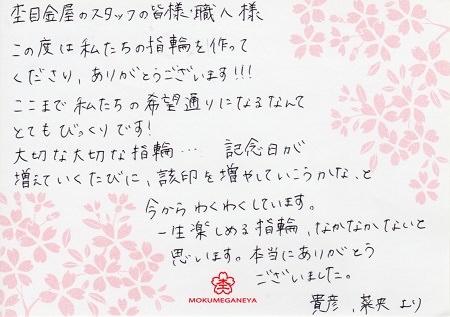 杢目金屋のスタッフの皆様・職人様
この度は私たちの指輪を作って
くださり、ありがとうございます!!!
ここまで私たちの希望通りになるなんて
とてもびっくりです!
大切な大切な指輪… 記念日が
増えていくたびに、刻印を増やしていこうかな、と
今からわくわくしています。
一生楽しめる指輪、なかなかないと
思います。本当にありがとう
ございました。
MOKUMEGANEYA
貴彦、菜央より